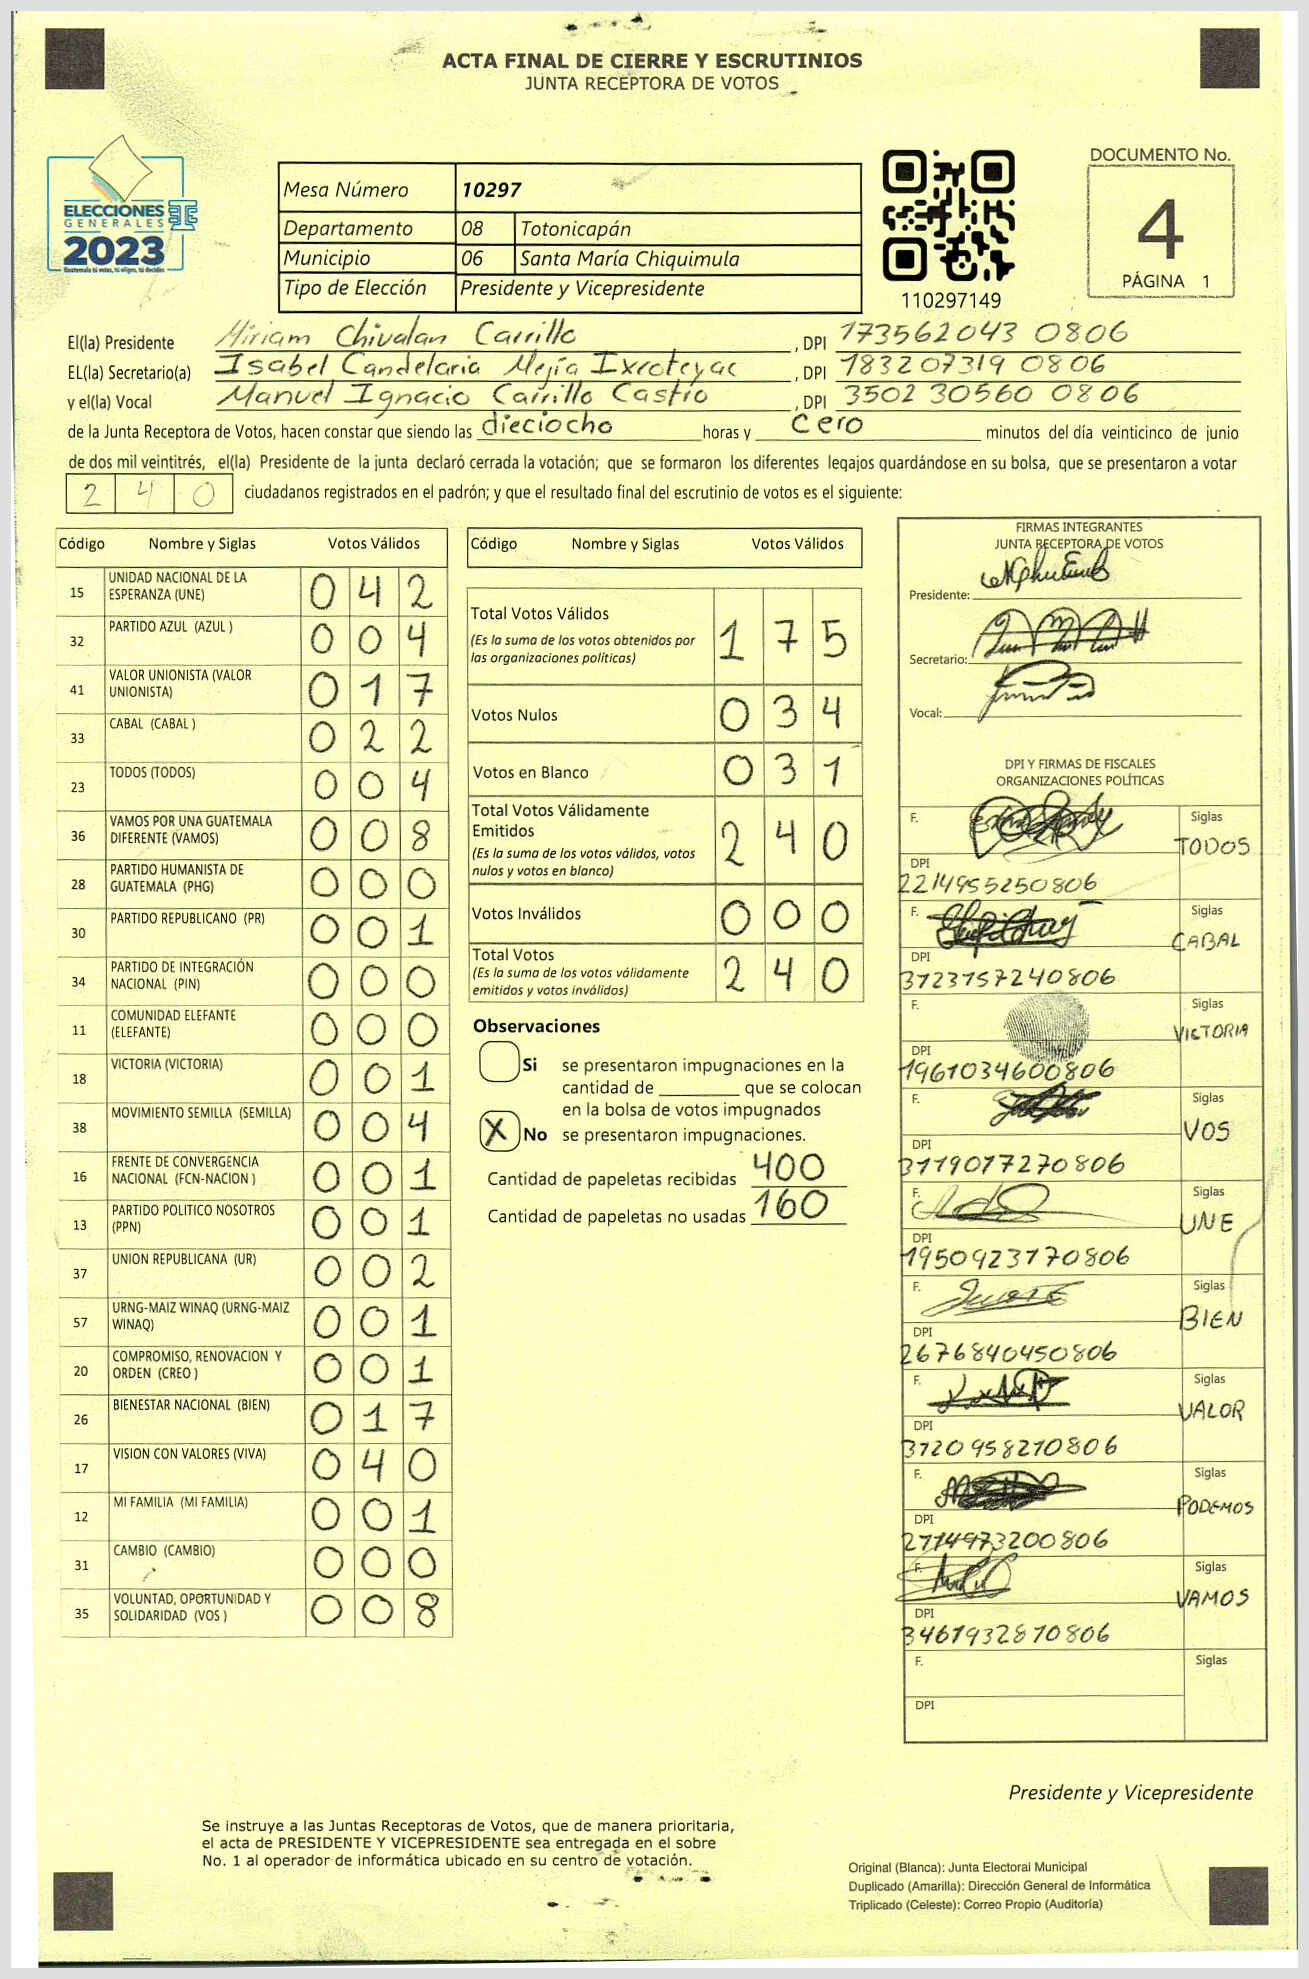 ACTA FINAL DE CIERRE Y ESCRUTINIOS
JUNTA RECEPTORA DE VOTOS
ELECCIONES
GENERALES
2023
Guatemala tú votas, tú eliges, tú decides
Mesa Número 10297
Departamento 08 Totonicapán
Municipio 06 Santa María Chiquimula
Tipo de Elección Presidente y Vicepresidente
110297149
DOCUMENTO No.
4
PÁGINA 1
El(la) Presidente Miriam Chivalan Carrillo, DPI 173562043 0806
EL(la) Secretario(a) Isabel Candelaria Mejía Ixcoteyac, DPI 183207319 0806
y el(la) Vocal Manuel Ignacio Carrillo Castro, DPI 3502 30560 0806
de la Junta Receptora de Votos, hacen constar que siendo las dieciocho horas y cero minutos del día veinticinco de junio
de dos mil veintitrés, el(la) Presidente de la junta declaró cerrada la votación; que se formaron los diferentes legajos quardándose en su bolsa, que se presentaron a votar
2 4 0 ciudadanos registrados en el padrón; y que el resultado final del escrutinio de votos es el siguiente:
Código Nombre y Siglas Votos Válidos
15 UNIDAD NACIONAL DE LA ESPERANZA (UNE) 0 4 2
32 PARTIDO AZUL (AZUL ) 0 0 4
41 VALOR UNIONISTA (VALOR UNIONISTA) 0 1 7
33 CABAL (CABAL ) 0 2 2
23 TODOS (TODOS) 0 0 4
36 VAMOS POR UNA GUATEMALA DIFERENTE (VAMOS) 0 0 8
28 PARTIDO HUMANISTA DE GUATEMALA (PHG) 0 0 0
30 PARTIDO REPUBLICANO (PR) 0 0 1
34 PARTIDO DE INTEGRACIÓN NACIONAL (PIN) 0 0 0
11 COMUNIDAD ELEFANTE (ELEFANTE) 0 0 0
18 VICTORIA (VICTORIA) 0 0 1
38 MOVIMIENTO SEMILLA (SEMILLA) 0 0 4
16 FRENTE DE CONVERGENCIA NACIONAL (FCN-NACION ) 0 0 1
13 PARTIDO POLITICO NOSOTROS (PPN) 0 0 1
37 UNION REPUBLICANA (UR) 0 0 2
57 URNG-MAIZ WINAQ (URNG-MAIZ WINAQ) 0 0 1
20 COMPROMISO, RENOVACION Y ORDEN (CREO ) 0 0 1
26 BIENESTAR NACIONAL (BIEN) 0 1 7
17 VISION CON VALORES (VIVA) 0 4 0
12 MI FAMILIA (MI FAMILIA) 0 0 1
31 CAMBIO (CAMBIO) 0 0 0
35 VOLUNTAD, OPORTUNIDAD Y SOLIDARIDAD (VOS ) 0 0 8
Código Nombre y Siglas Votos Válidos
Total Votos Válidos 1 7 5
(Es la suma de los votos obtenidos por
las organizaciones políticas)
Votos Nulos 0 3 4
Votos en Blanco 0 3 1
Total Votos Válidamente
Emitidos 2 4 0
(Es la suma de los votos válidos, votos
nulos y votos en blanco)
Votos Inválidos 0 0 0
Total Votos 2 4 0
(Es la suma de los votos válidamente
emitidos y votos inválidos)
Observaciones
Si se presentaron impugnaciones en la
cantidad de ________ que se colocan
en la bolsa de votos impugnados
X No se presentaron impugnaciones.
Cantidad de papeletas recibidas 400
Cantidad de papeletas no usadas 160
FIRMAS INTEGRANTES
JUNTA RECEPTORA DE VOTOS
Presidente:
Secretario:
Vocal:
DPI Y FIRMAS DE FISCALES
ORGANIZACIONES POLÍTICAS
F. Siglas TODOS
DPI 2214955250806
F. Siglas CABAL
DPI 3723757240806
F. Siglas VICTORIA
DPI 1961034600806
F. Siglas VOS
DPI 3119017270806
F. Siglas UNE
DPI 1950923170806
F. Siglas BIEN
DPI 2676840450806
F. Siglas VALOR
DPI 3720958210806
F. Siglas PODEMOS
DPI 2714973200806
F. Siglas VAMOS
DPI 3461932810806
F. Siglas
DPI
Presidente y Vicepresidente
Se instruye a las Juntas Receptoras de Votos, que de manera prioritaria,
el acta de PRESIDENTE Y VICEPRESIDENTE sea entregada en el sobre
No. 1 al operador de informática ubicado en su centro de votación.
Original (Blanca): Junta Electoral Municipal
Duplicado (Amarilla): Dirección General de Informática
Triplicado (Celeste): Correo Propio (Auditoría)